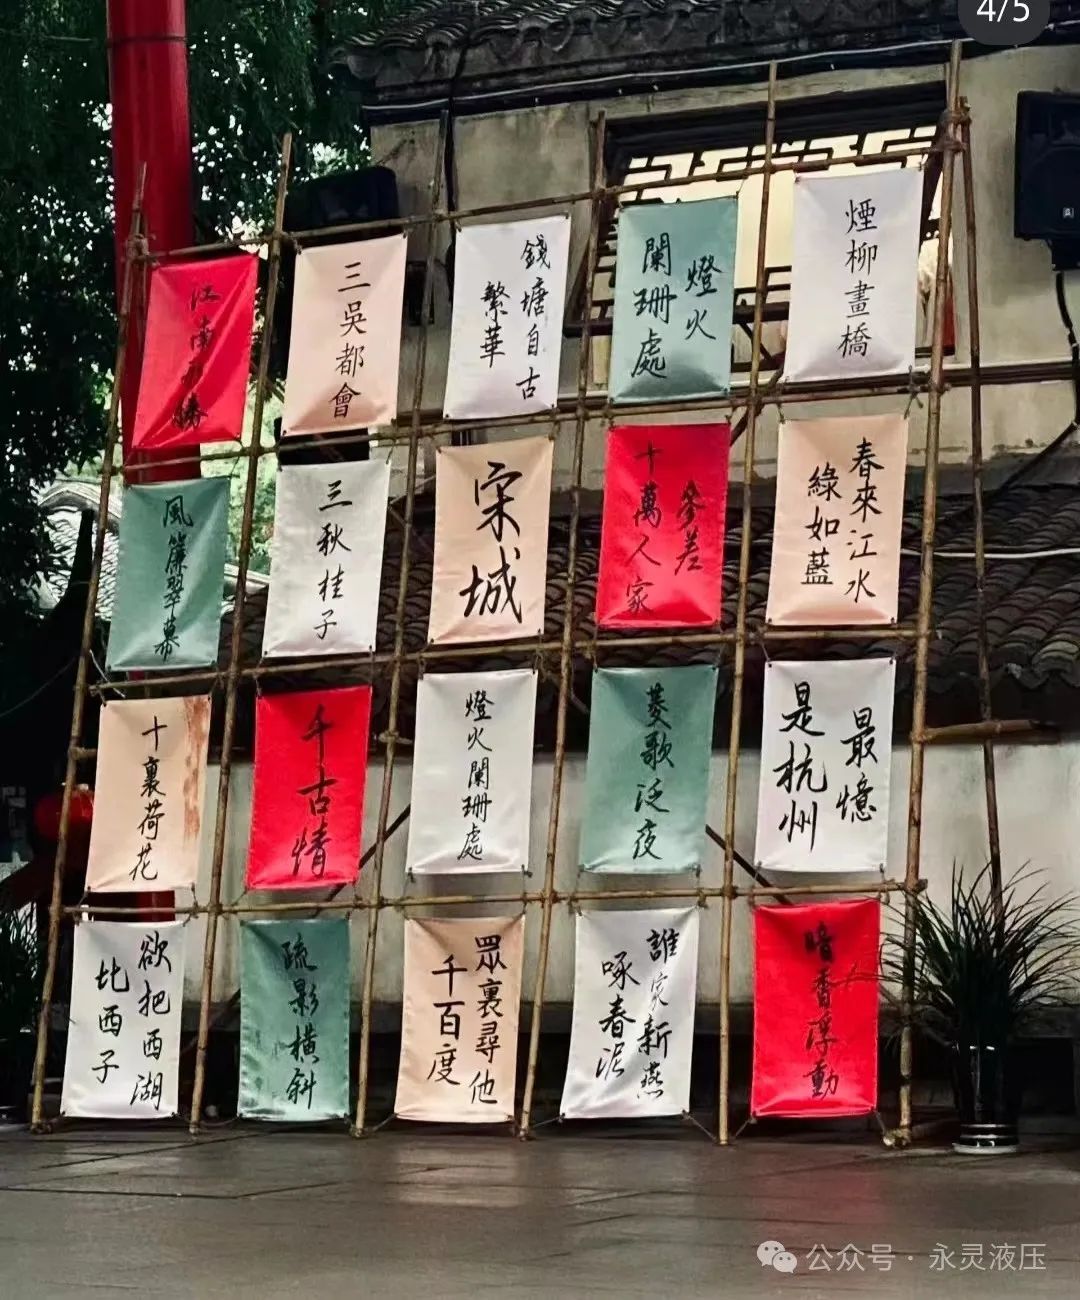 4/5
江南形勝
三吳都會
錢塘自古
繁華
燈火
闌珊處
煙柳畫橋
風簾翠幕
三秋桂子
宋城
參差
十萬人家
春來江水
綠如藍
十裏荷花
千古情
燈火闌珊處
菱歌泛夜
最憶
是杭州
欲把西湖
比西子
疏影橫斜
眾裏尋他
千百度
誰家新燕
啄春泥
暗香浮動
公众号 · 永灵液压